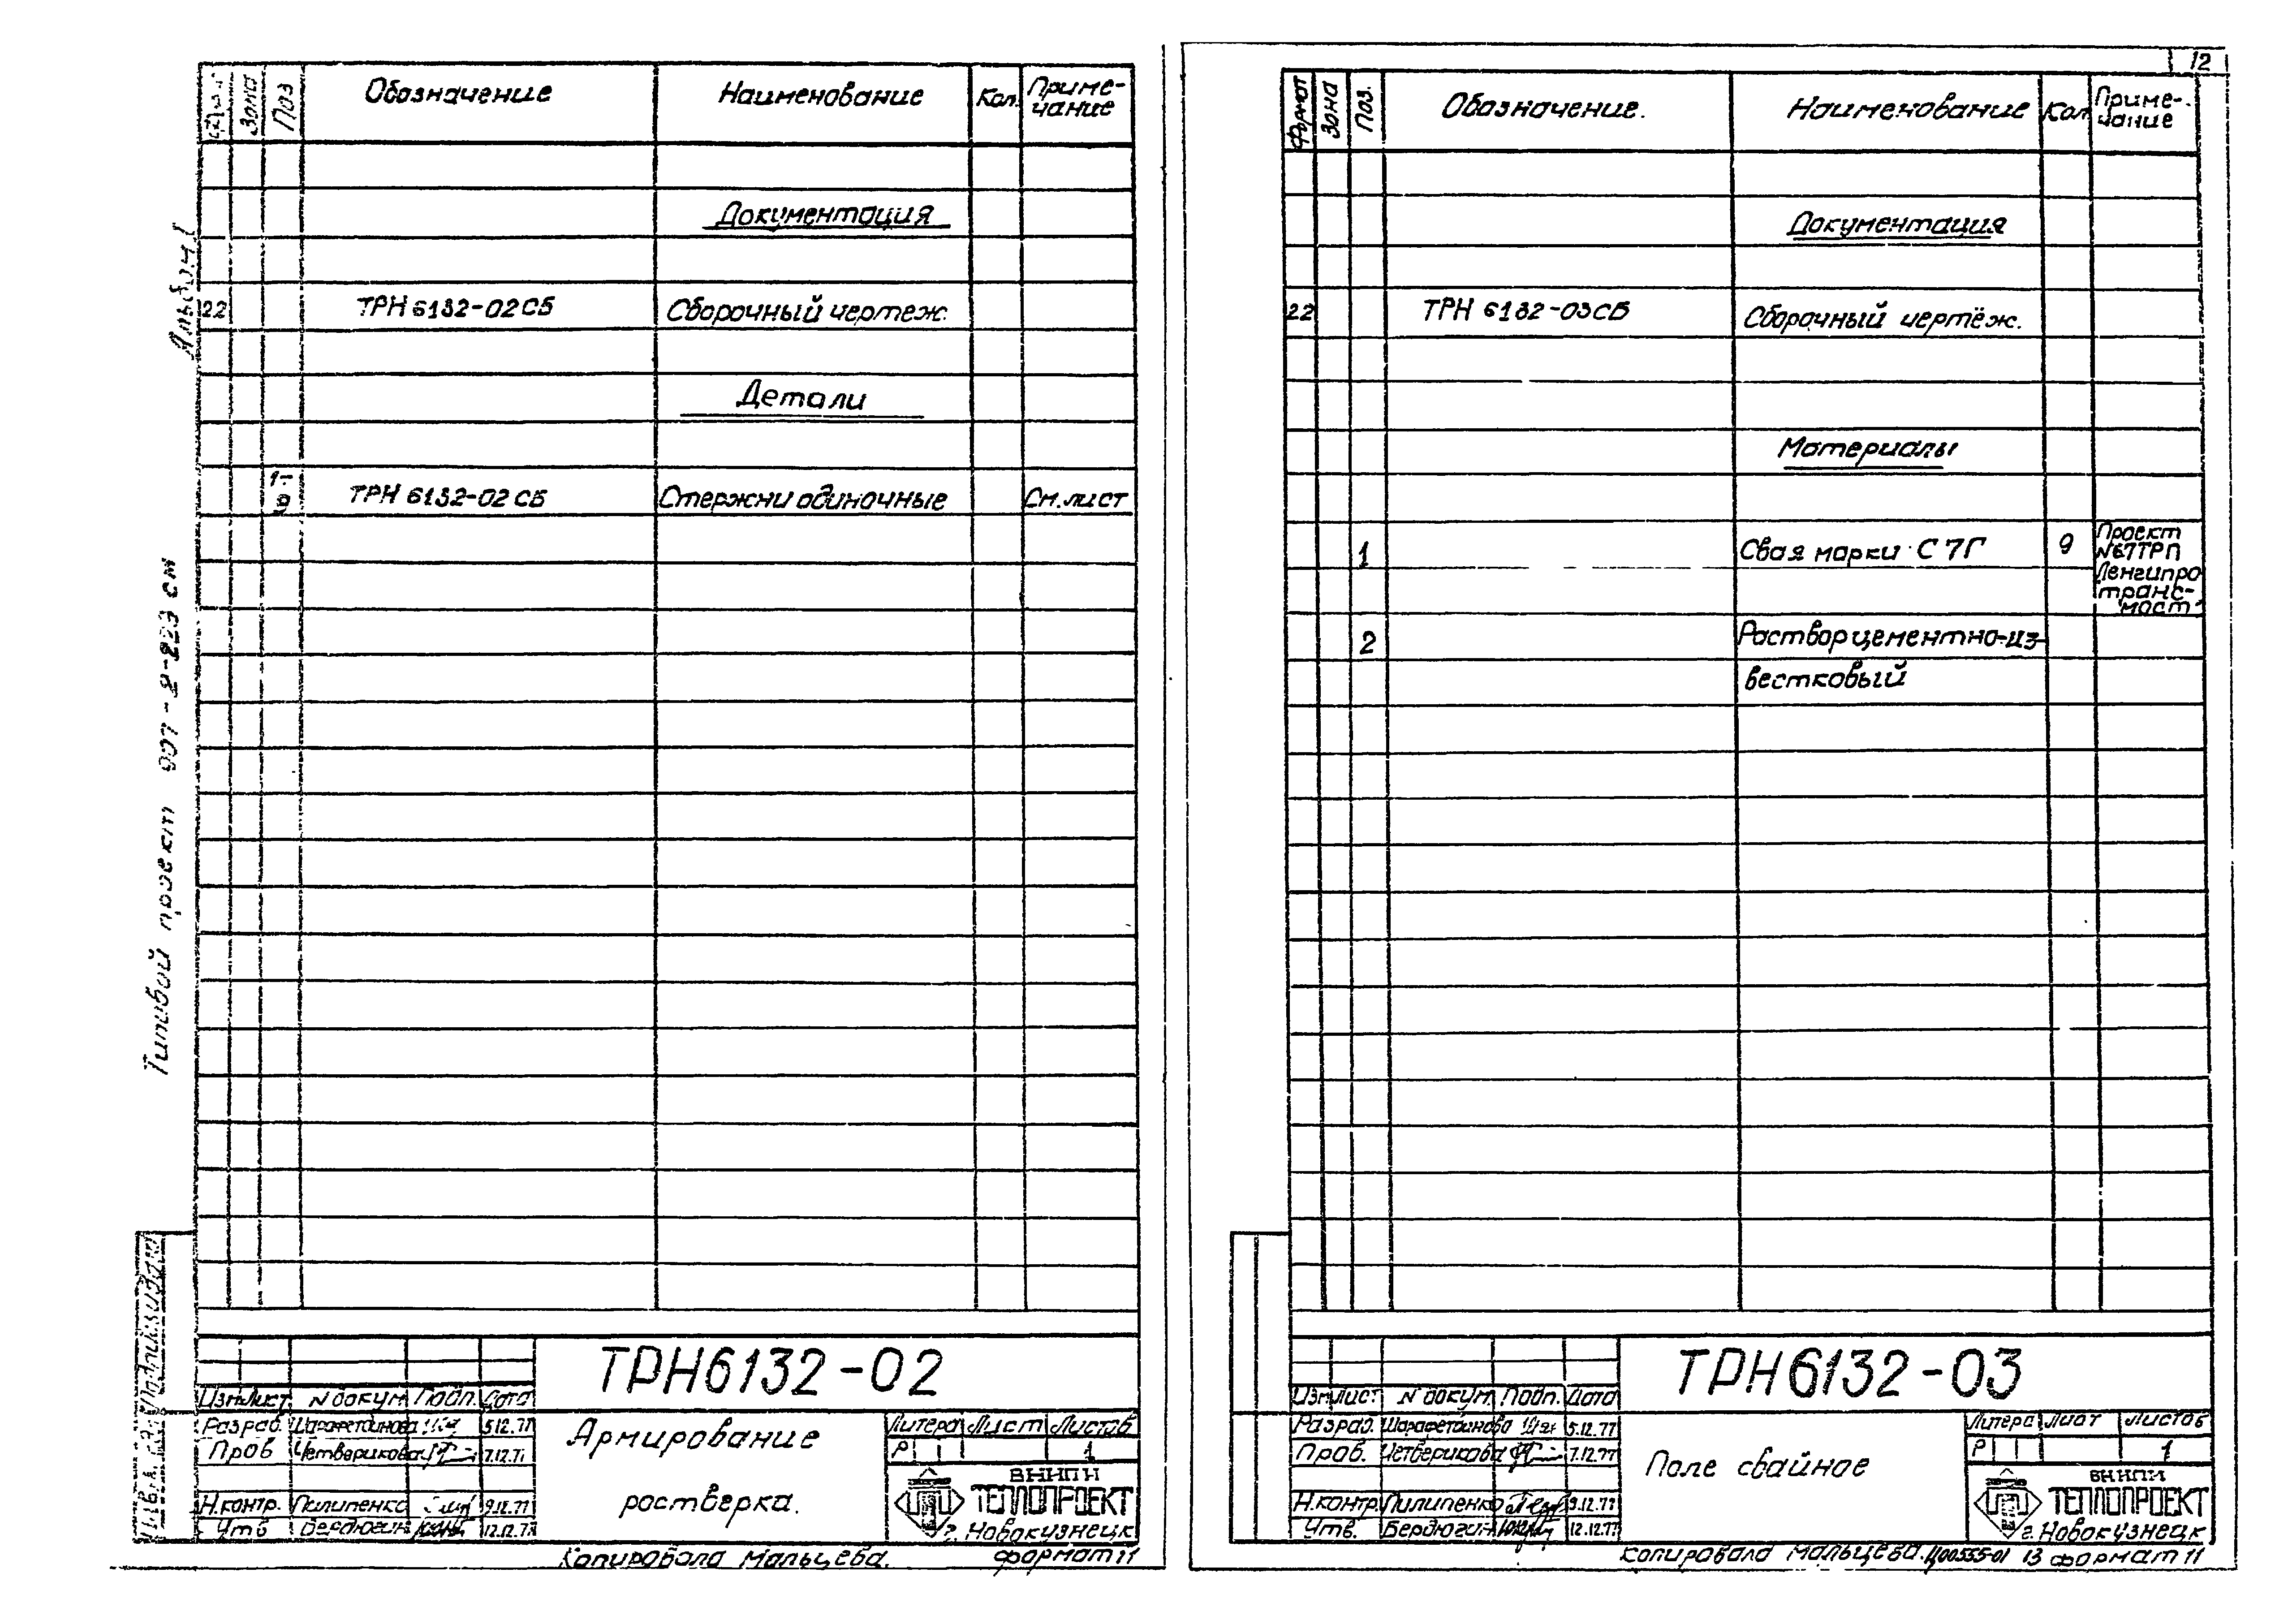 Формат Зона Поз. Обозначение Наименование Кол. Приме-
чание
Документация
22 ТРН 6132-02СБ Сборочный чертеж.
Детали
1-
9 ТРН 6132-02СБ Стержни одиночные См. лист
Альбом I
Типовой проект 907-2-223 см
ТРН6132-02
Изм. Лист N докум. Подп. Дата
Разраб. Шарафетдинова 5.12.77
Пров Четверикова 7.12.77
Н.контр. Пилипенко 9.12.77
Утв Бердюгин 12.12.77
Армирование
ростверка.
Литера Лист Листов
Р 1
ВНИПИ
ТЕПЛОПРОЕКТ
г. Новокузнецк
Копировала Мальцева. формат 11
12
Формат Зона Поз. Обозначение. Наименование Кол Приме-
чание
Документация
22 ТРН 6132-03СБ Сборочный чертёж.
Материалы
1 Свая марки С7Г 9 Проект
N67ТРП
Ленгипро
транс-
мост
2 Раствор цементно-из-
вестковый
ТРН6132-03
Изм. Лист N докум. Подп. Дата
Разраб. Шарафетдинова 5.12.77
Пров. Четверикова 7.12.77
Н.контр. Пилипенко 9.12.77
Утв. Бердюгин 12.12.77
Поле свайное
Литера Лист Листов
Р 1
ВНИПИ
ТЕПЛОПРОЕКТ
г. Новокузнецк
Копировала Мальцева. Ц00555-01 13 формат 11